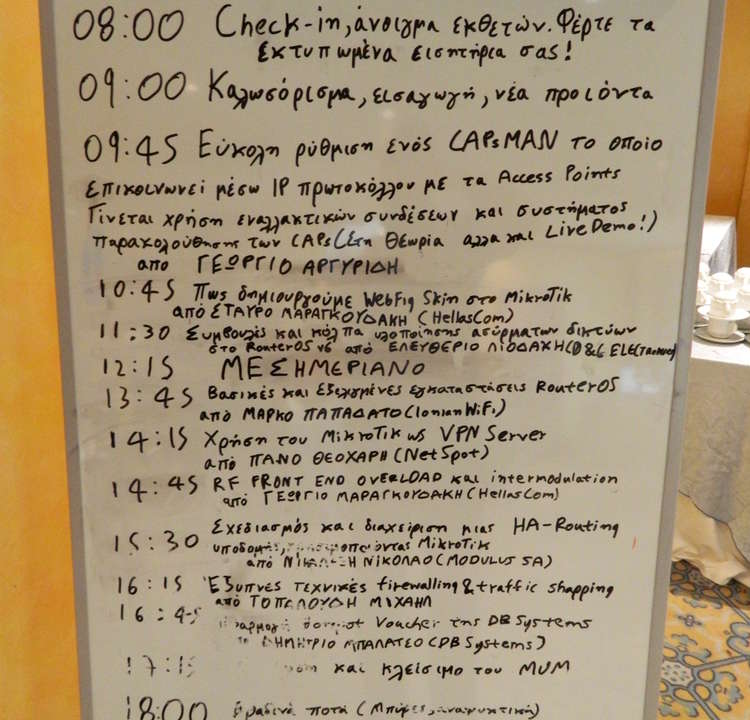 08:00 Check-in, άνοιγμα εκθετών. Φέρτε τα
εκτυπωμένα εισητήρια σας!
09:00 Καλωσόρισμα, εισαγωγή, νέα προιόντα
09:45 Εύκολη ρύθμιση ενός CAPsMAN το οποίο
επικοινωνεί μέσω IP πρωτοκόλλου με τα Access Points
Γίνεται χρήση εναλλακτικών συνδέσεων και συστήματος
παρακολούθησης των CAPs (Στη θεωρία αλλα και Live Demo!)
από ΓΕΩΡΓΙΟ ΑΡΓΥΡΙΔΗ
10:45 Πως δημιουργούμε WebFig Skin στο MikroTik
από ΣΤΑΥΡΟ ΜΑΡΑΓΚΟΥΔΑΚΗ (HellasCom)
11:30 Συμβουλές και κόλπα υλοποίησης ασύρματων δικτύων
στο RouterOS v6 από ΕΛΕΥΘΕΡΙΟ ΛΙΟΔΑΚΗ
12:15 ΜΕΣΗΜΕΡΙΑΝΟ
13:45 Βασικές και Εξελιγμένες εγκαταστάσεις RouterOS
από ΜΑΡΚΟ ΠΑΠΑΔΑΤΟ (IonianWiFi)
14:15 Χρήση του MikroTik ως VPN Server
από ΠΑΝΟ ΘΕΟΧΑΡΗ (NetSpot)
14:45 RF FRONT END OVERLOAD και intermodulation
από ΓΕΩΡΓΙΟ ΜΑΡΑΓΚΟΥΔΑΚΗ (HellasCom)
15:30 Σχεδιασμός και διαχείριση μιας HA-Routing
υποδομής, MikroTik
από ΝΙΚΟΛΑΟ (MODULUS SA)
16:15 Έξυπνες τεχνικές firewalling & traffic shapping
από ΤΟΠΑΛΟΥΔΗ ΜΙΧΑΗΛ
16:45 Voucher της DB Systems
ΔΗΜΗΤΡΙΟ ΜΠΑΛΑΤΕΟ (DB Systems)
17:15 και κλείσιμο του MUM
18:00 Βραδινά ποτά (Μπύρες, αναψυκτικά)